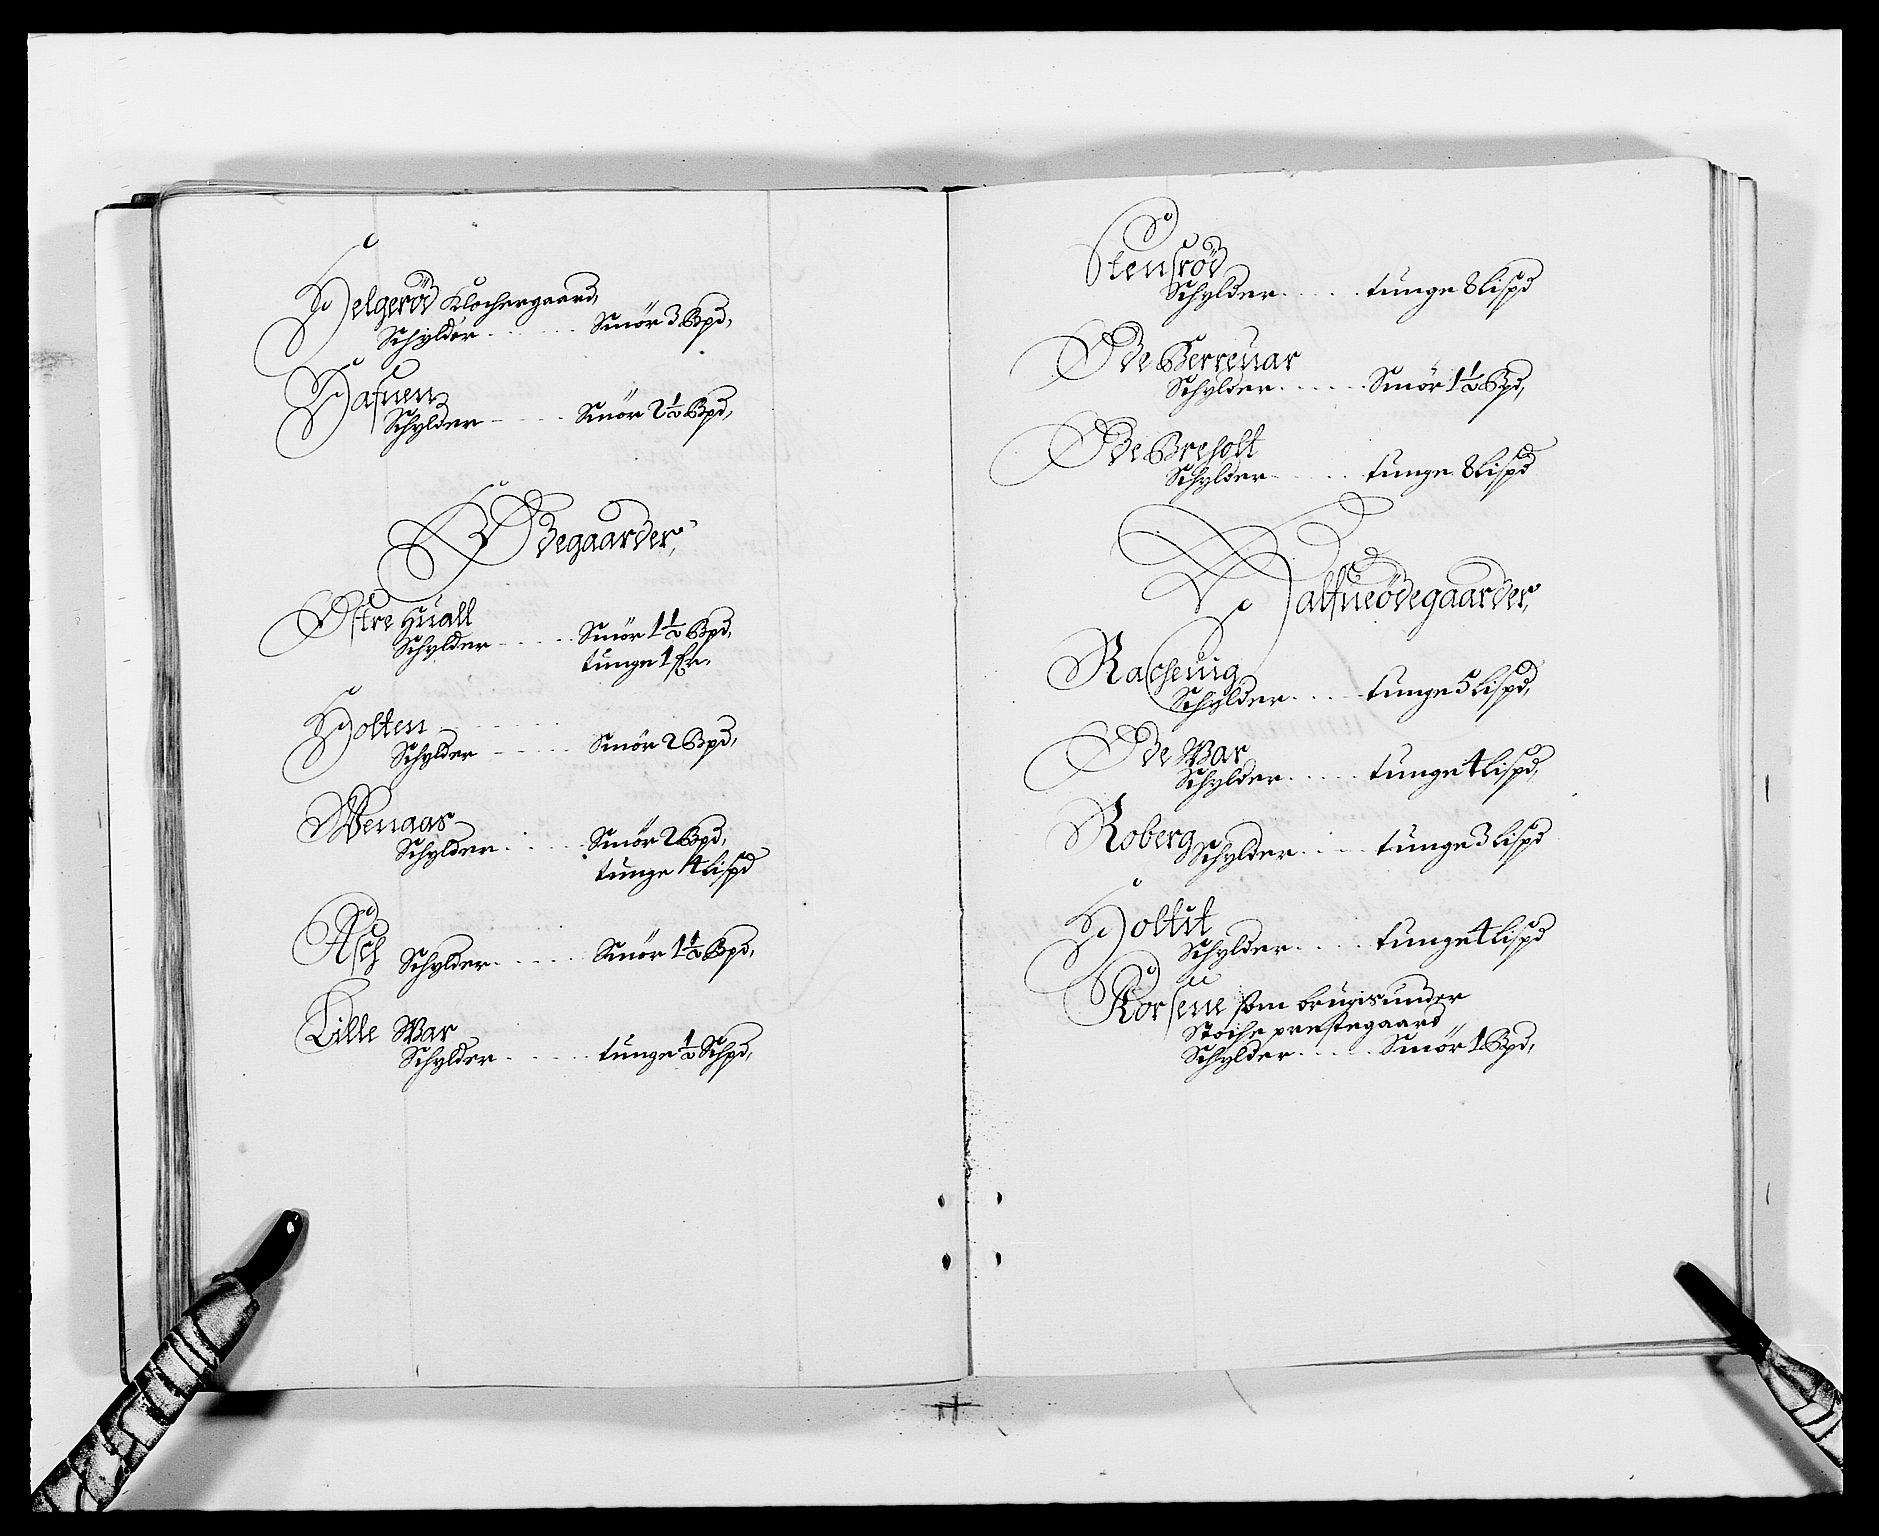 Helgerød Klochergaard,
Schylder . . . . . . Smör 3 Bpd,
Hafuen
Schylder . . . . . Smör 2½ Bpd,
Ødegaarder,
Østre Huall
Schylder . . . . . Smör 1½ Bpd,
tunge 1 fr.
Holten
Schylder . . . . . Smör 2 Bpd,
Wenaas
Schylder . . . . . Smör 2 Bpd,
tunge 4 Lispd
Asch
Schylder . . . . . Smör 1½ Bpd,
Lille War
Schylder . . . . . tunge ½ Schpd,
Stensröd
Schylder . . . . . tunge 8 Lispd
Øde Berreuar
Schylder . . . . . Smör 1½ Bpd,
Øde Breholt
Schylder . . . . . tunge 8 Lispd
Halfueödegaarder,
Racheuig
Schylder . . . . . tunge 5 Lispd,
Øde War
Schylder . . . . . tunge 4 Lispd,
Roberg
Schylder . . . . . tunge 3 Lispd
Holtit
Schylder . . . . . tunge 4 Lispd
Korsene som brugis under
Stoche prestegaard
Schylder . . . . . Smör 1 Bpd,